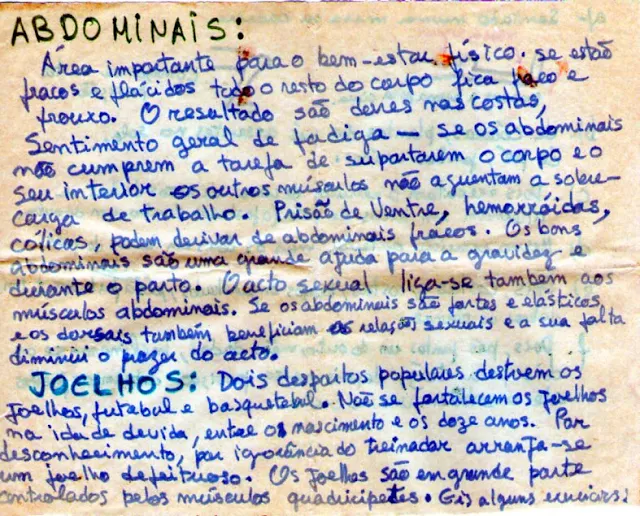 ABDOMINAIS:
Área importante para o bem-estar físico. se estão
fracos e flácidos todo o resto do corpo fica fraco e
frouxo. O resultado são dores nas costas,
Sentimento geral de fadiga — se os abdominais
não cumprem a tarefa de suportarem o corpo e o
seu interior os outros músculos não aguentam a sobre-
carga de trabalho. Prisão de Ventre, hemorróidas,
cólicas, podem derivar de abdominais fracos. Os bons
abdominais são uma grande ajuda para a gravidez e
durante o parto. O acto sexual liga-se também aos
músculos abdominais. Se os abdominais são fortes e elásticos
e os dorsais também beneficiam as relações sexuais e a sua falta
diminui o prazer do acto.
JOELHOS: Dois desportos populares destroem os
Joelhos, futebul e basquetebul. Não se fortalecem os Joelhos
na idade devida, entre o nascimento e os doze anos. Por
desconhecimento, por ignorância do treinador arranja-se
um joelho defeituoso. Os Joelhos são em grande parte
controlados pelos músculos quadricipetes. Eis alguns